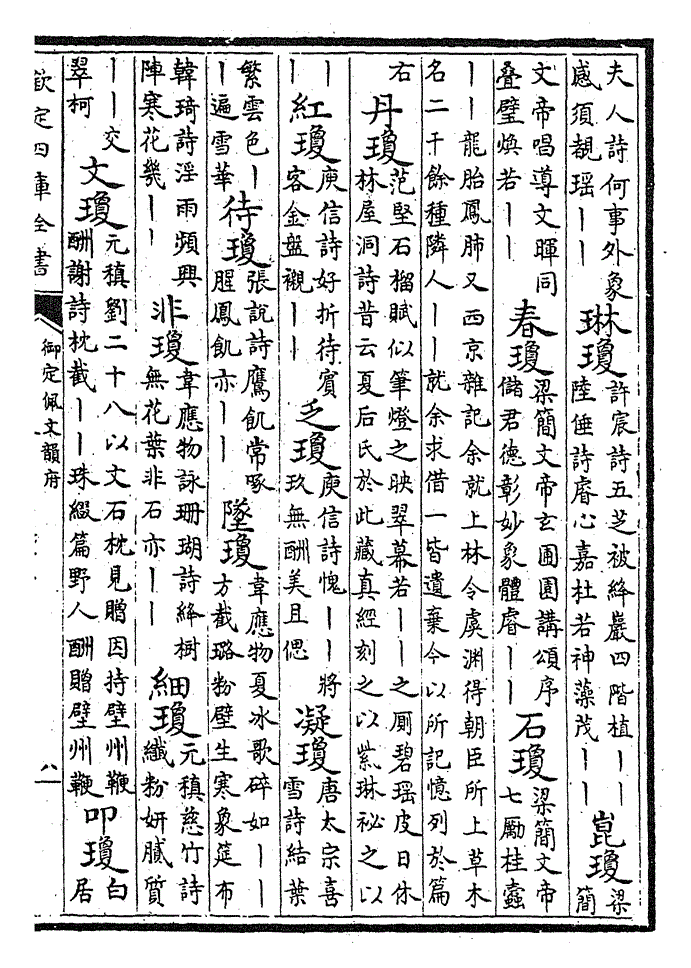 夫人詩何事外象
感須覩瑤｜｜
琳瓊
許宸詩五芝被絳巖四階植｜｜
陸倕詩睿心嘉杜若神藻茂｜｜
崑瓊
梁
簡
文帝唱導文暉同
疊璧煥若｜｜
春瓊
梁簡文帝玄圃園講頌序
儲君德彰妙象體睿｜｜
石瓊
梁簡文帝
七勵桂蠹
｜｜龍胎鳳肺又西京雜記余就上林令虞淵得朝臣所上草木
名二千餘種隣人｜｜就余求借一皆遺棄今以所記憶列於篇
右
丹瓊
范堅石榴賦似筆燈之映翠幕若｜｜之厠碧瑤皮日休
林屋洞詩昔云夏后氏於此藏真經刻之以紫琳祕之以
｜
｜
紅瓊
庾信詩好折待賓
客金盤襯｜｜
乏瓊
庾信詩愧｜｜將
玖無酬美且偲
凝瓊
唐太宗喜
雪詩結葉
繁雲色｜
｜遍雪華
待瓊
張說詩鷹飢常啄
腥鳳飢亦｜｜
墜瓊
韋應物夏冰歌碎如｜｜
方截璐粉壁生寒象筵布
韓琦詩淫雨頻興
陣寒花幾｜｜
非瓊
韋應物詠珊瑚詩絳樹
無花葉非石亦｜｜
細瓊
元稹慈竹詩
纖粉妍膩質
｜｜交
翠柯
文瓊
元稹劉二十八以文石枕見贈因持壁州鞭
酬謝詩枕截｜｜珠綴篇野人酬贈壁州鞭
叩瓊
白
居
欽定四庫全書
御定佩文韻府